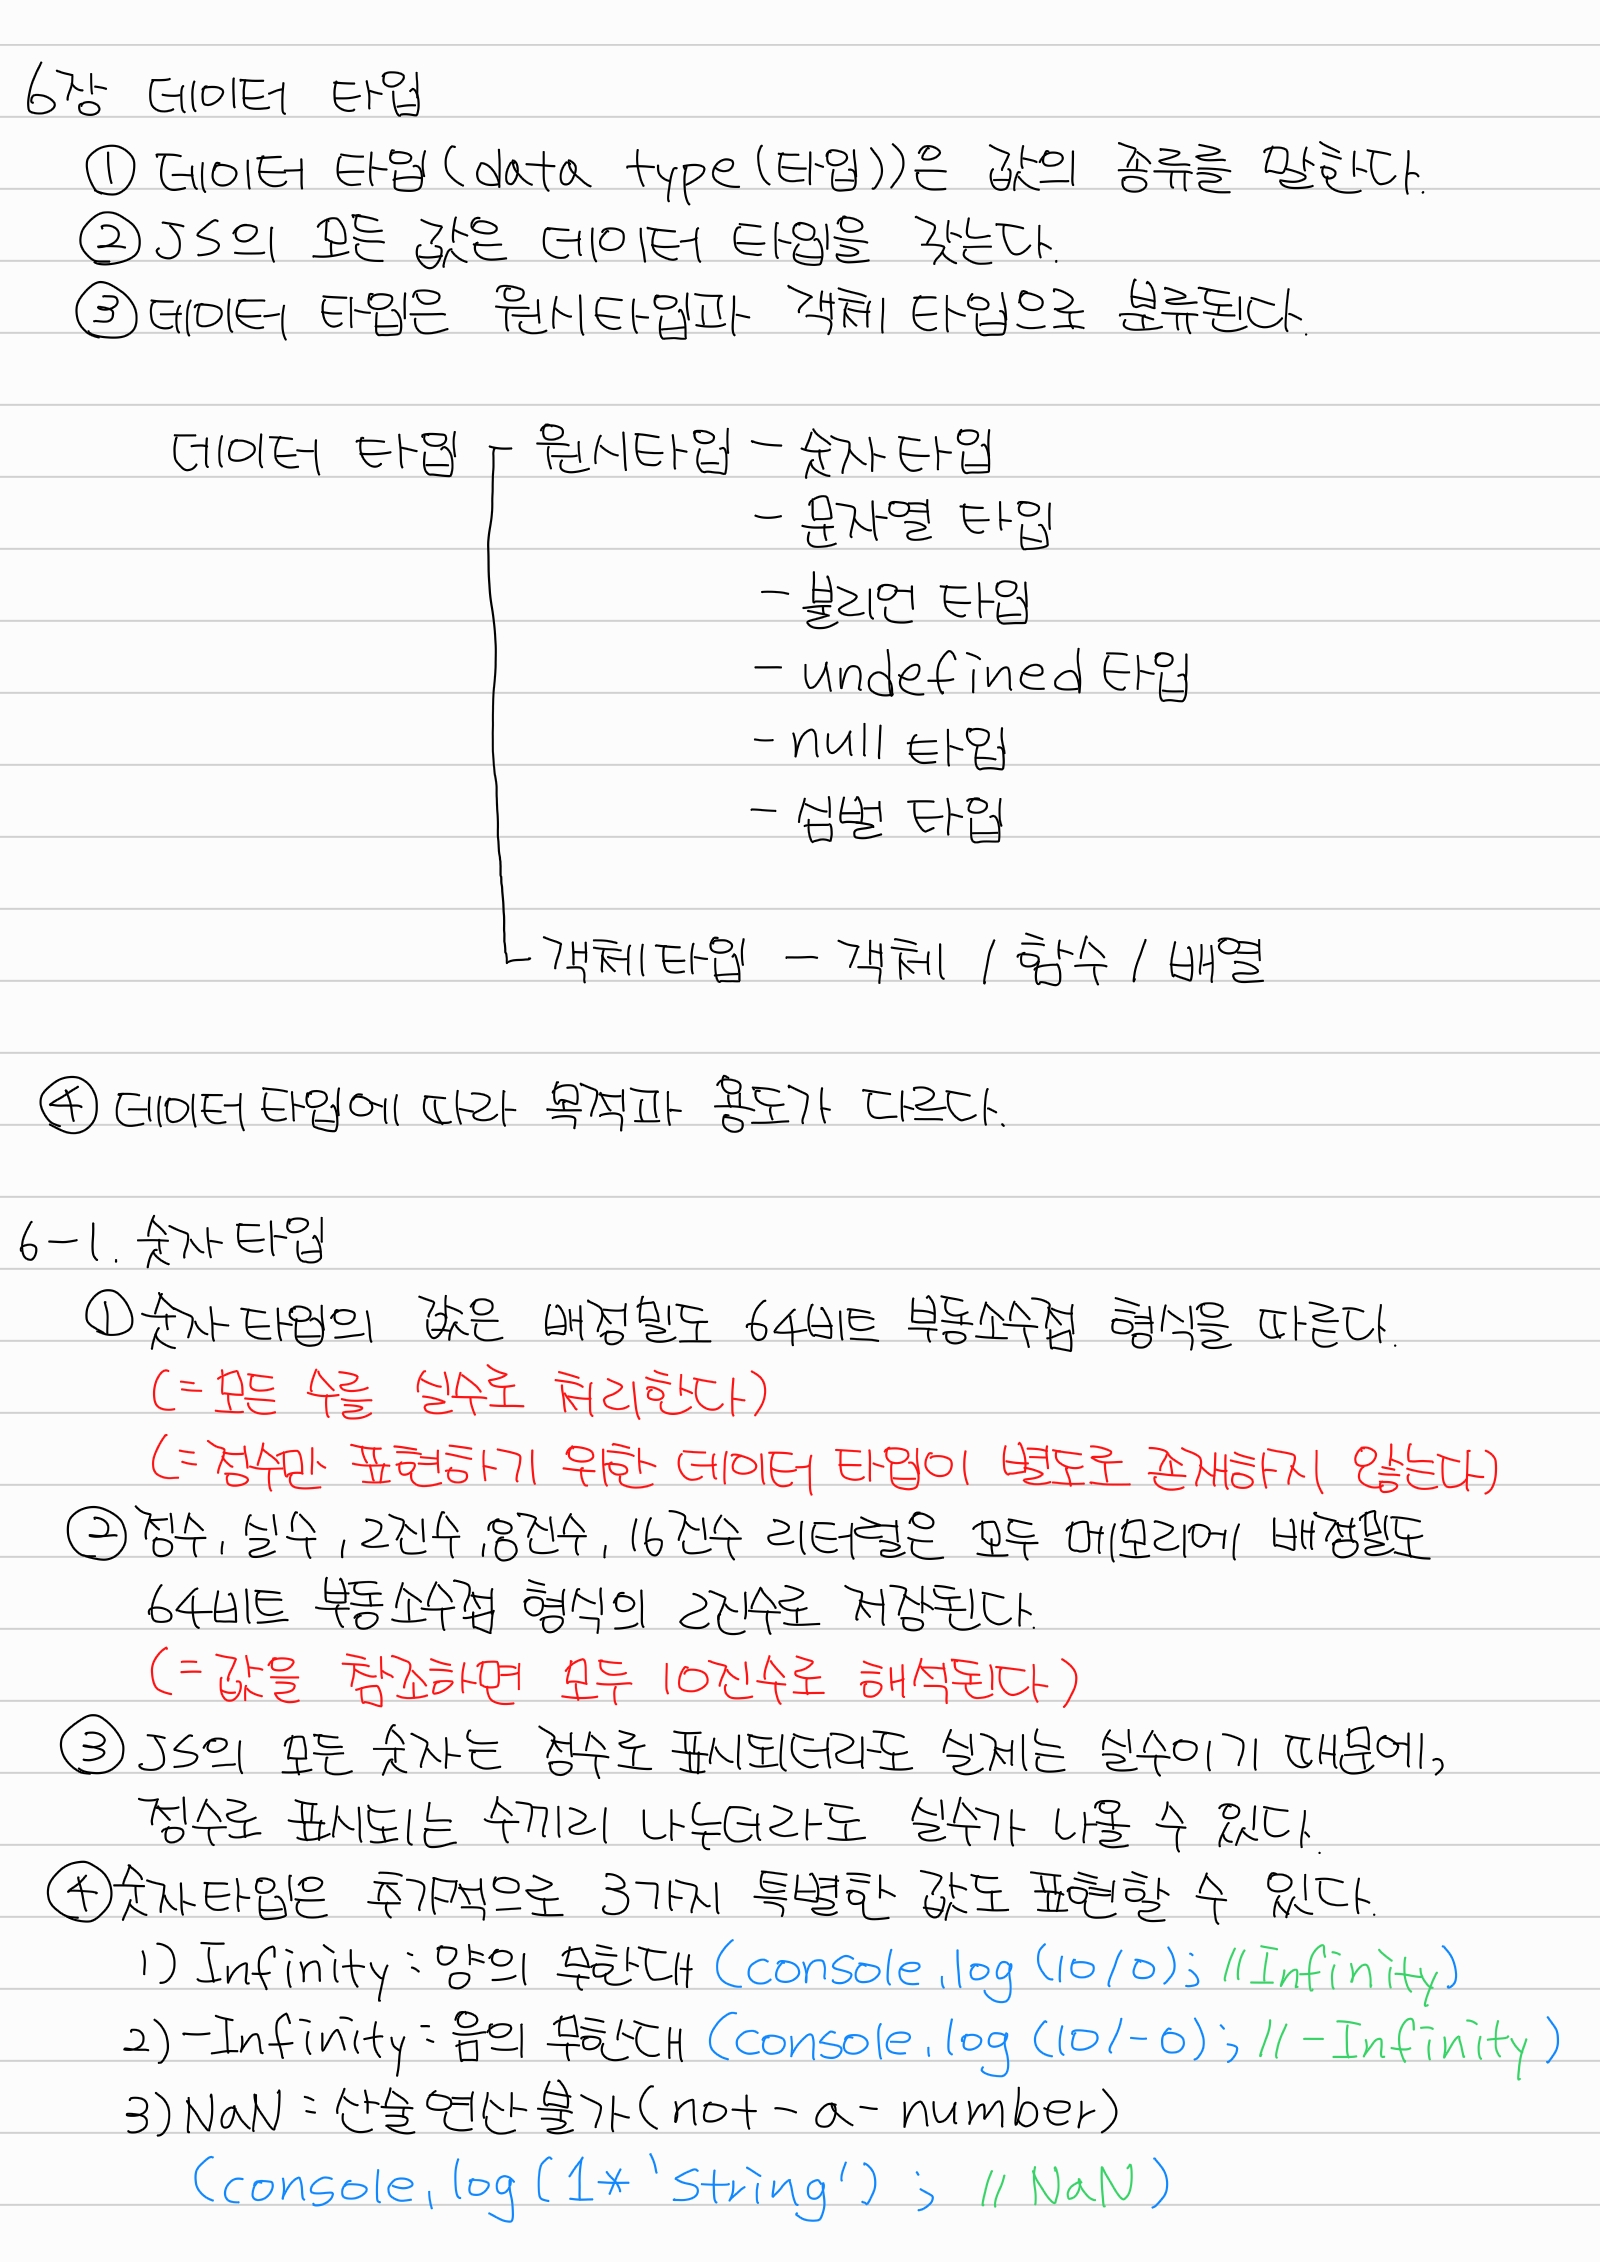 6장 데이터 타입
① 데이터 타입(data type(타입))은 값의 종류를 말한다.
② JS의 모든 값은 데이터 타입을 갖는다.
③ 데이터 타입은 원시타입과 객체 타입으로 분류된다.
데이터 타입 - 원시타입 - 숫자타입
- 문자열 타입
- 불리언 타입
- undefined 타입
- null 타입
- 심벌 타입
객체타입 - 객체 / 함수 / 배열
④ 데이터타입에 따라 목적과 용도가 다르다.
6-1. 숫자타입
① 숫자타입의 값은 배정밀도 64비트 부동소수점 형식을 따른다.
(= 모든 수를 실수로 처리한다)
(= 정수만 표현하기 위한 데이터 타입이 별도로 존재하지 않는다)
② 정수, 실수, 2진수, 8진수, 16진수 리터럴은 모두 메모리에 배정밀도
64비트 부동소수점 형식의 2진수로 저장된다.
(= 값을 참조하면 모두 10진수로 해석된다)
③ JS의 모든 숫자는 정수로 표시되더라도 실제는 실수이기 때문에,
정수로 표시되는 수끼리 나누더라도 실수가 나올 수 있다.
④ 숫자타입은 추가적으로 3가지 특별한 값도 표현할 수 있다.
1) Infinity : 양의 무한대 (console.log(10/0); //Infinity)
2) -Infinity : 음의 무한대 (console.log(10/-0); // -Infinity)
3) NaN : 산술연산불가(not-a-number)
(console.log(1*'string'); // NaN)